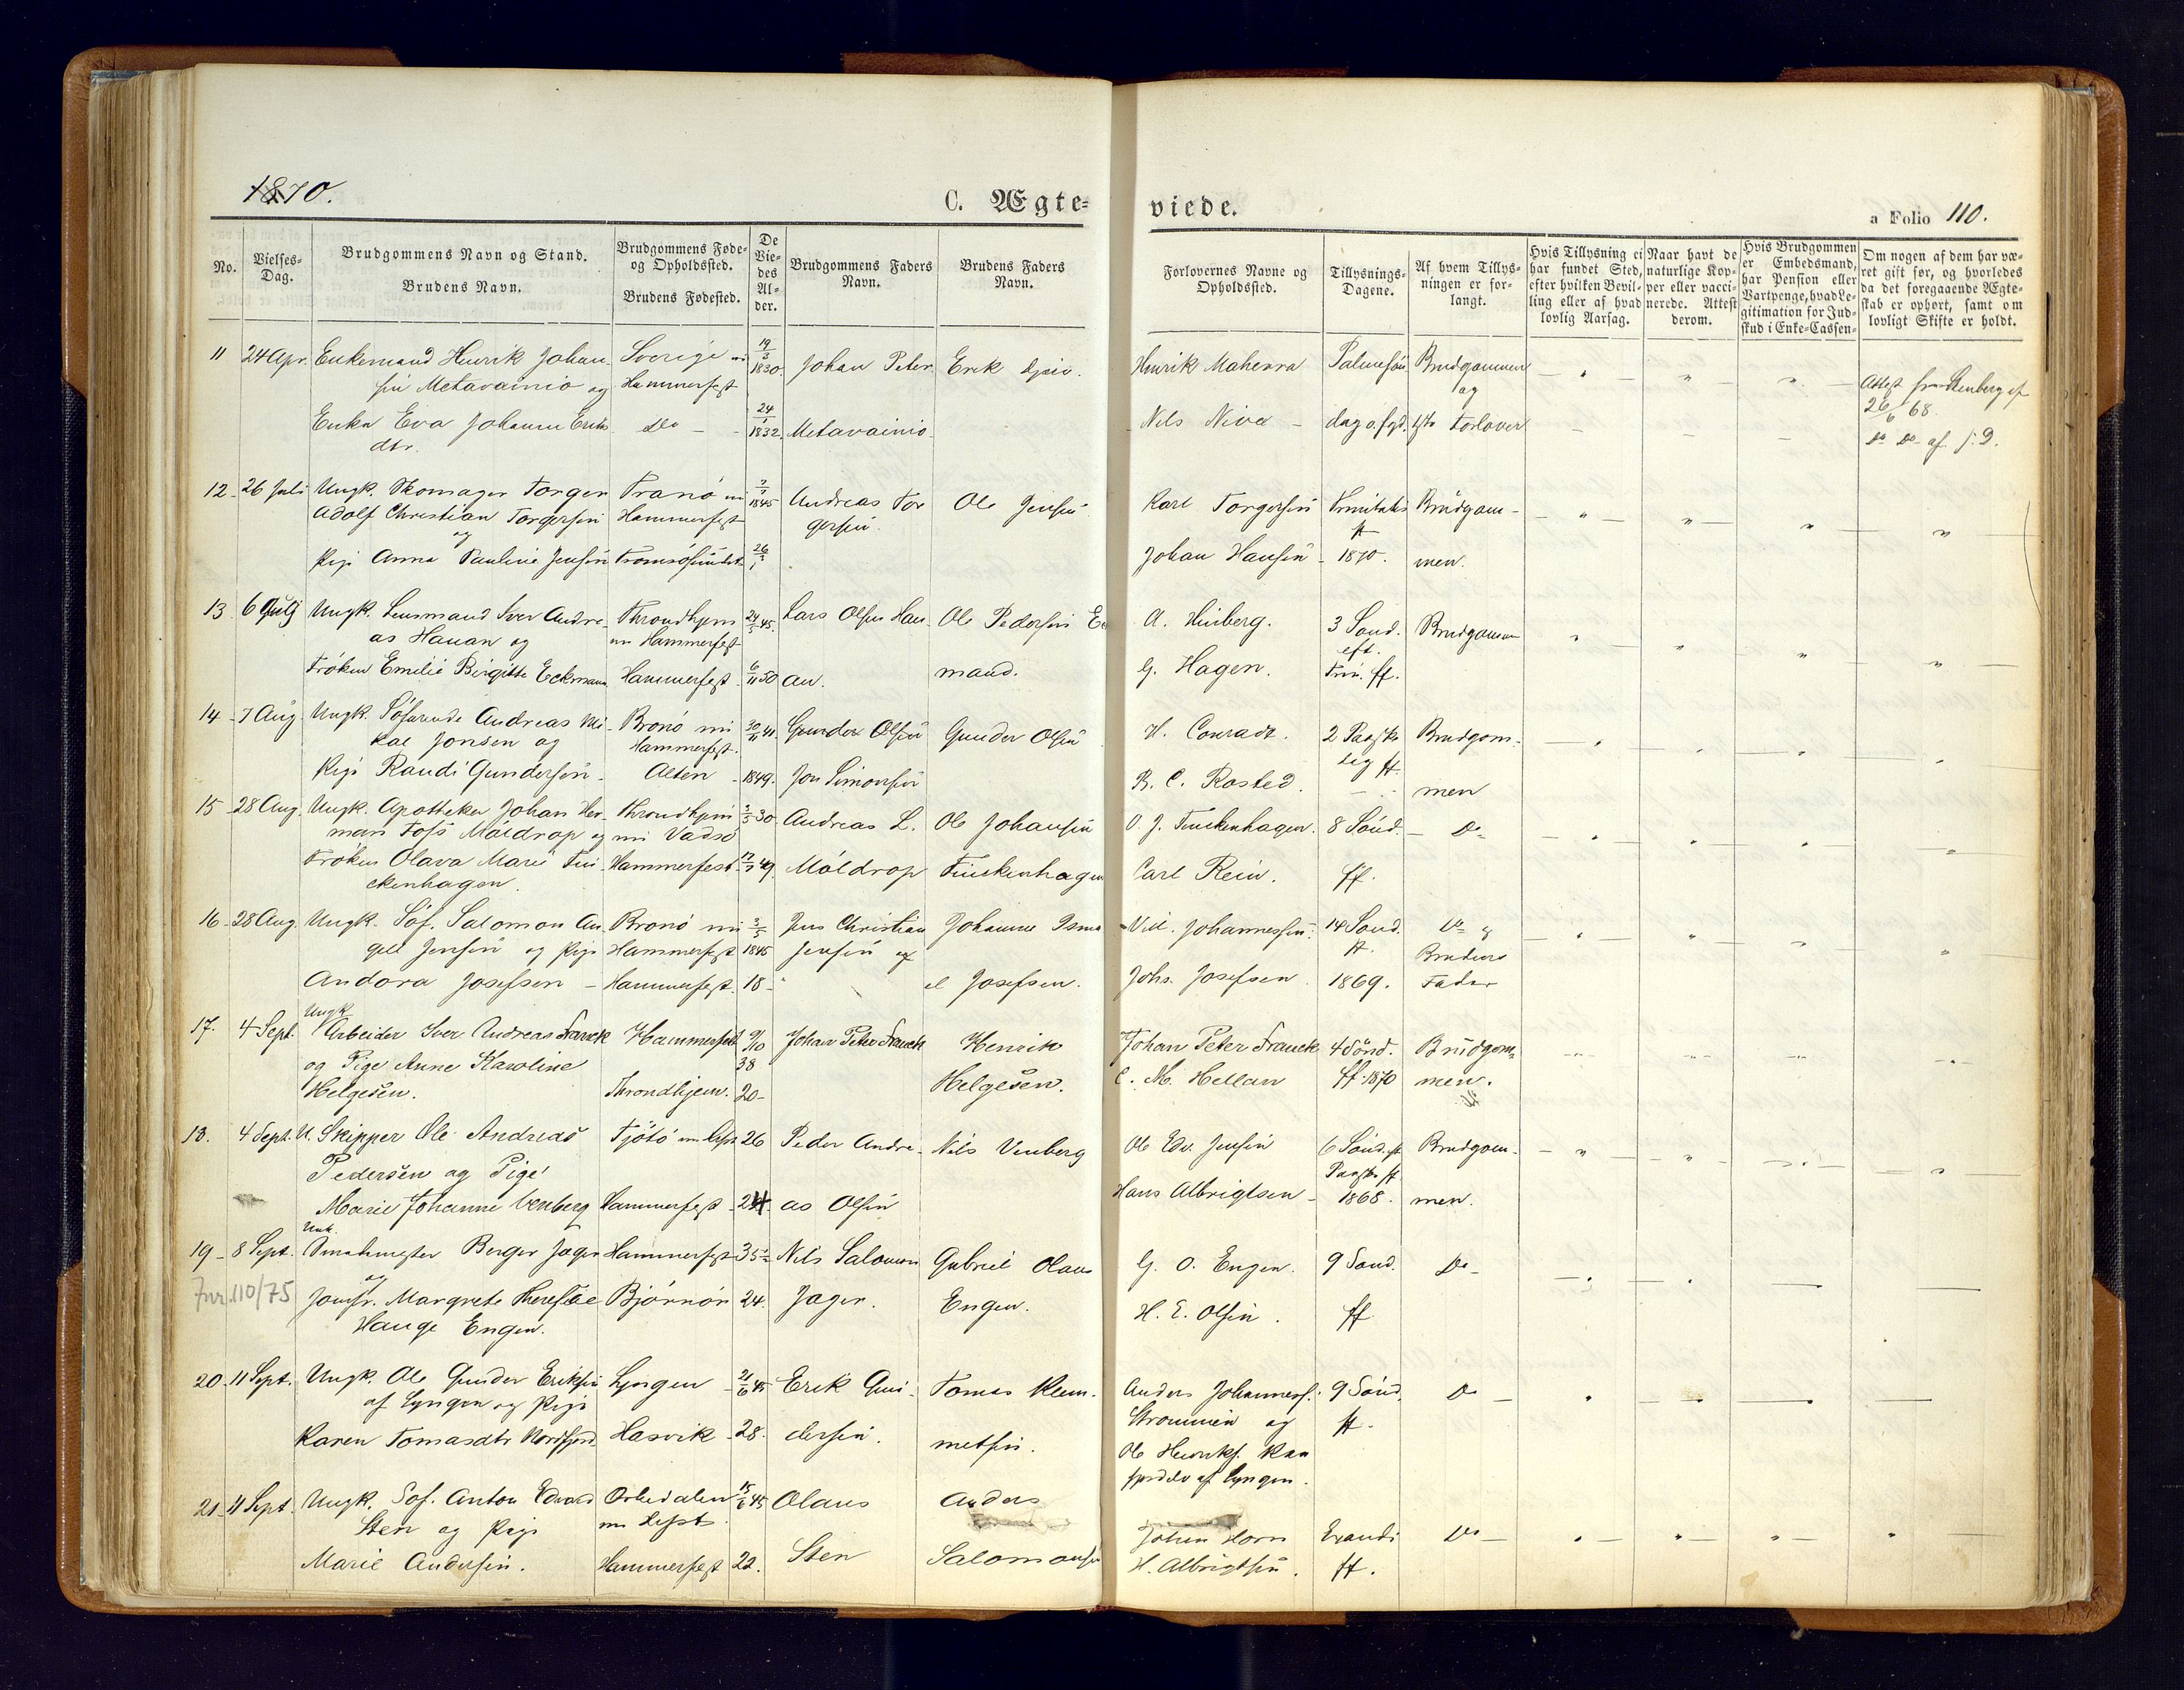 1870.
C. Ægte-
viede.
a Folio 110.
No.
Vielses-
Dag.
Brudgommens Navn og Stand.
Brudens Navn.
Brudgommens Føde-
og Opholdssted.
Brudens Fødested.
De
Vie-
des
Al-
der.
Brudgommens Faders
Navn.
Brudens Faders
Navn.
Forlovernes Navne og
Opholdssted.
Tillysnings-
Dagene.
Af hvem Tillys-
ningen er for-
langt.
Hvis Tillysning ei
har fundet Sted,
efter hvilken Bevil-
ling eller af hvad
lovlig Aarsag.
Naar havt de
naturlige Kop-
per eller vacci-
nerede. Attest
derom.
Hvis Brudgommen
er Embedsmand,
har Pension eller
Vartpenge, hvad Le-
gitimation for Jud-
skud i Enke-Cassen.
Om nogen af dem har væ-
ret gift før, og hvorledes
da det foregaaende Ægte-
skab er ophørt, samt om
lovligt Skifte er holdt.
11 24 Apr. Enkemand Henrik Johan- Sverige 19/3 1830. Johan Peter Erik Henrik Mahenra Brudgommen
sen Metavainio og Hammerfest og Attest
26/6 68.
Enke Eva Johanne Eriks Do 24/1 1832. Metavainio Nils Niva dag o. flgd. Forlover Do Do af s. D.
dtr.
12 26 Juli Ungk. Skomager Torger Tranø 1845 Andreas Tor Ole Jensen Karl Torgersen Trinitatis Brudgom-
Adolf Christian Torgersen Hammerfest gersen. ff
og
Pige Anna Pauline Jensen Tromsøsundet 26 Johan Hansen 1870. men.
13 6 Juli Ungk. Lensmand Iver Andre- Throndhjem 24/5 45. Lars Olsen Hau- Ole Pedersen Ec A. 3 Sønd. Brudgommen
as Hauan og nu Hammerfest eft.
Frøken Emilie Birgitte Eckmann Hammerfest 6/11 50 an. mand. G. Hagen. Trin. ff.
14 7 Aug. Ungk. Søfarende Andreas Mi- Brønø nu 30/11 41. Gunder Olsen Gunder Olsen H. Conradt. 2 Paaske Brudgom-
kal Jonsen og Hammerfest. dag ff.
Pige Randi Gundersen Alten 1849. Jon Simonsen B. C. Rosted. men
15 28 Aug. Ungk. Apotheker Johan Her- Throndhjem 30. Andreas L. Ole Johansen O. J. Finckenhagen. 8 Sønd. Do
man Foss Møldrop og nu Vadsø
Frøken Olava Marie Fin- Hammerfest 49. Møldrop Finckenhagen Carl Rein. ff.
ckenhagen.
16 28 Aug. Ungk. Søf. Salomon An- Brønø nu 3/5 Jens Christian Johannes Isma- Vill. Johannessen. 14 Sønd. Do og
gell Jensen og Pige Hammerfest 1845 Jensen ff. Brudens
Andora Josefsen Hammerfest. 18 el Josefsen. Johs. Josefsen 1869. Fader
17. 4 Sept. Ungk. Arbeider Iver Andreas Franck Hammerfest 9/10 Johan Peter Franck Henrik Johan Peter Franck 4 Sønd. Brudgom-
og Pige Anne Karoline 38
Helgesen. Throndhjem. 20 Helgesen. C. M. Hellan ff. 1870 men.
18. 4 Sept. U. Skipper Ole Andreas Tjøtø nu Hfst 26 Peder Andre- Nils Venberg Ole Edv. Jensen 6 Sønd. eft Brudgom-
Pedersen og Pige Paaske ff
Marie Johanne Venberg Hammerfest 24 as Olsen Hans Albrigtsen 1868. men.
19 8 Sept. Unk. Berger Jæger Hammerfest 35 Nils Salomon Gabriel Olaus G. O. Engen. 9 Sønd. Do
og
110/75 Jomfr. Margrete Therese Bjørnør 24. Jæger. Engen. H. E. Olsen. ff
Hauge Engen.
20 11 Sept. Ungk. Ole Gunder Eriksen Lyngen 21/6 45 Erik Gun- Tomas Klem- Anders Johannesf. 9 Sønd. Do
af Lyngen og Pige Strømmen og ff.
Karen Tomasdtr Nordfjord Hasvik 28. dersen. metsen. Ole Henriks.
af Lyngen.
21 11 Sept. Ungk. Søf. Anton Edvard Orkedalen 45 Olaus Anders Johan Horn Exaudi Do
Sten og Pige nu Hfst
Marie Andersen. Hammerfest 22. Sten Salomonsen H. Albrigtsen. ff.